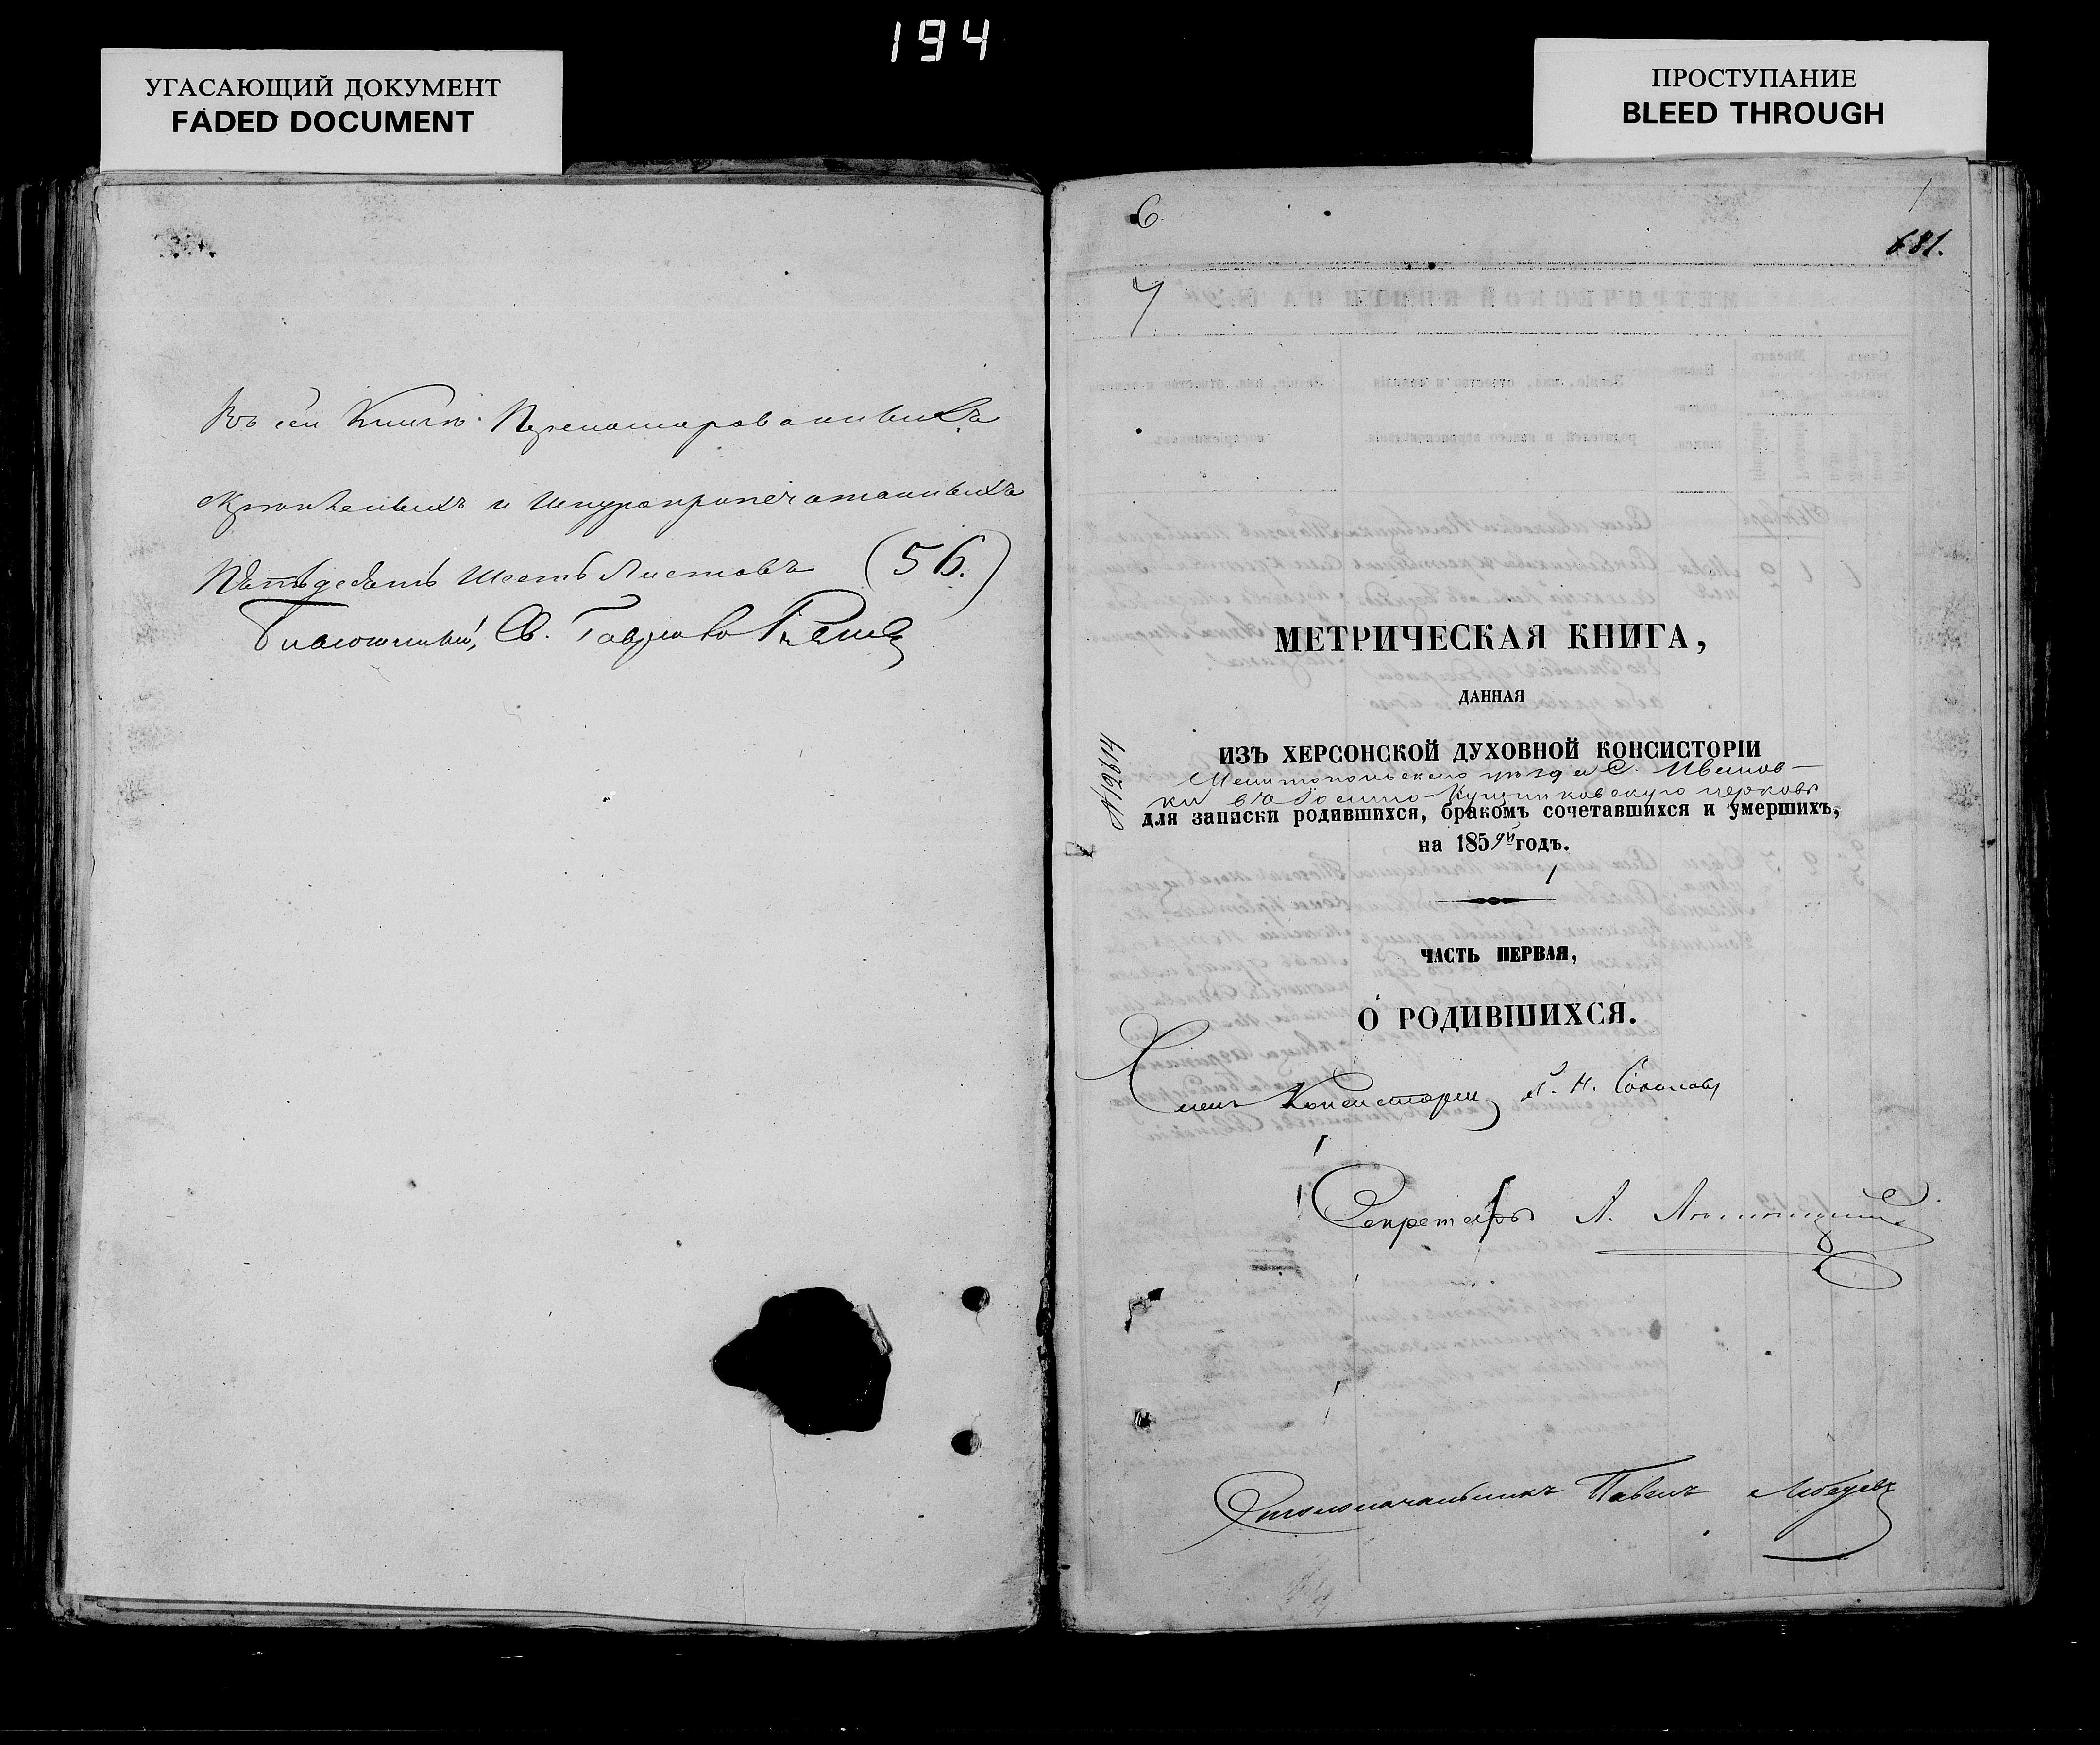 194
УГАСАЮЩИЙ ДОКУМЕНТ
FADED DOCUMENT
ПРОСТУПАНИЕ
BLEED THROUGH
Въ сей Книгѣ Перенумерованныхъ
скрѣпленныхъ и Шнуропропечатанныхъ
Пятьдесятъ Шесть Листовъ (56.)
Благочинный, Св. Гавріилъ
6.
1
681.
7
МЕТРИЧЕСКАЯ КНИГА,
ДАННАЯ
ИЗЪ ХЕРСОНСКОЙ ДУХОВНОЙ КОНСИСТОРІИ
Мелитопольскаго уѣзда С. Иванов-
ки въ церковь
для записки родившихся, бракомъ сочетавшихся и умершихъ,
на 1859й годъ.
№ 12614
ЧАСТЬ ПЕРВАЯ,
О РОДИВШИХСЯ.
Членъ Консисторіи П. Н. Соколовъ
Секретарь Л.
Столоначальникъ Павелъ